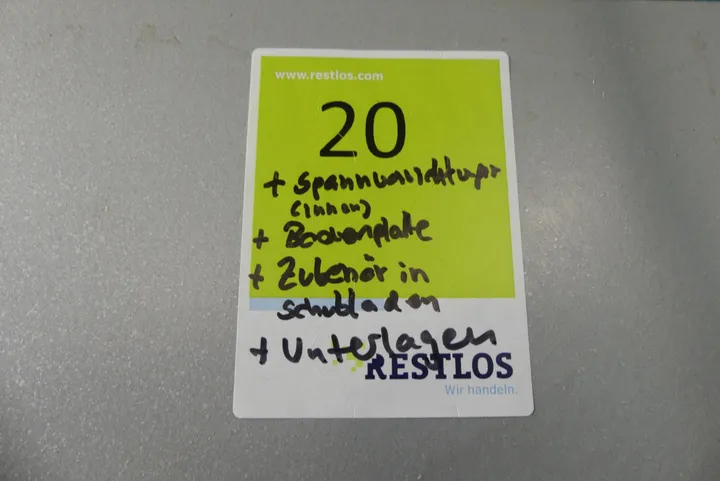 www.restlos.com
20
+ Spannvorrichtungen
(innen)
+ Bodenplatte
+ Zubehör in
Schubladen
+ Unterlagen
RESTLOS
Wir handeln.